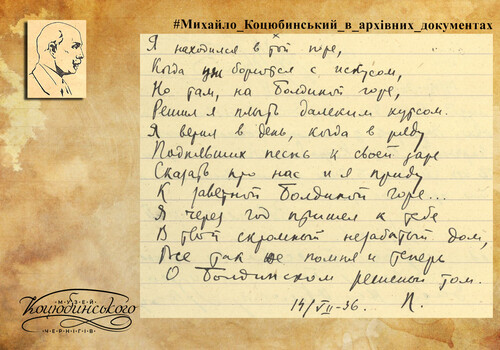 #Михайло_Коцюбинський_в_архівних_документах
Я находился в той поре,
Когда уж борются с искусом,
Но там, на Болдиной горе,
Решил я плыть далеким курсом.
Я верил в день, когда в ряду
Поднявших песнь к своей заре
Сказать про нас и я приду
К заветной Болдиной горе...
Я через год пришел к тебе
В твой скромный незабытый дом,
Все так же помня и теперь
О Болдинском решеньи том.
14/VII-36.. П.
МУЗЕЙ
Коцюбинського
ЧЕРНІГІВ